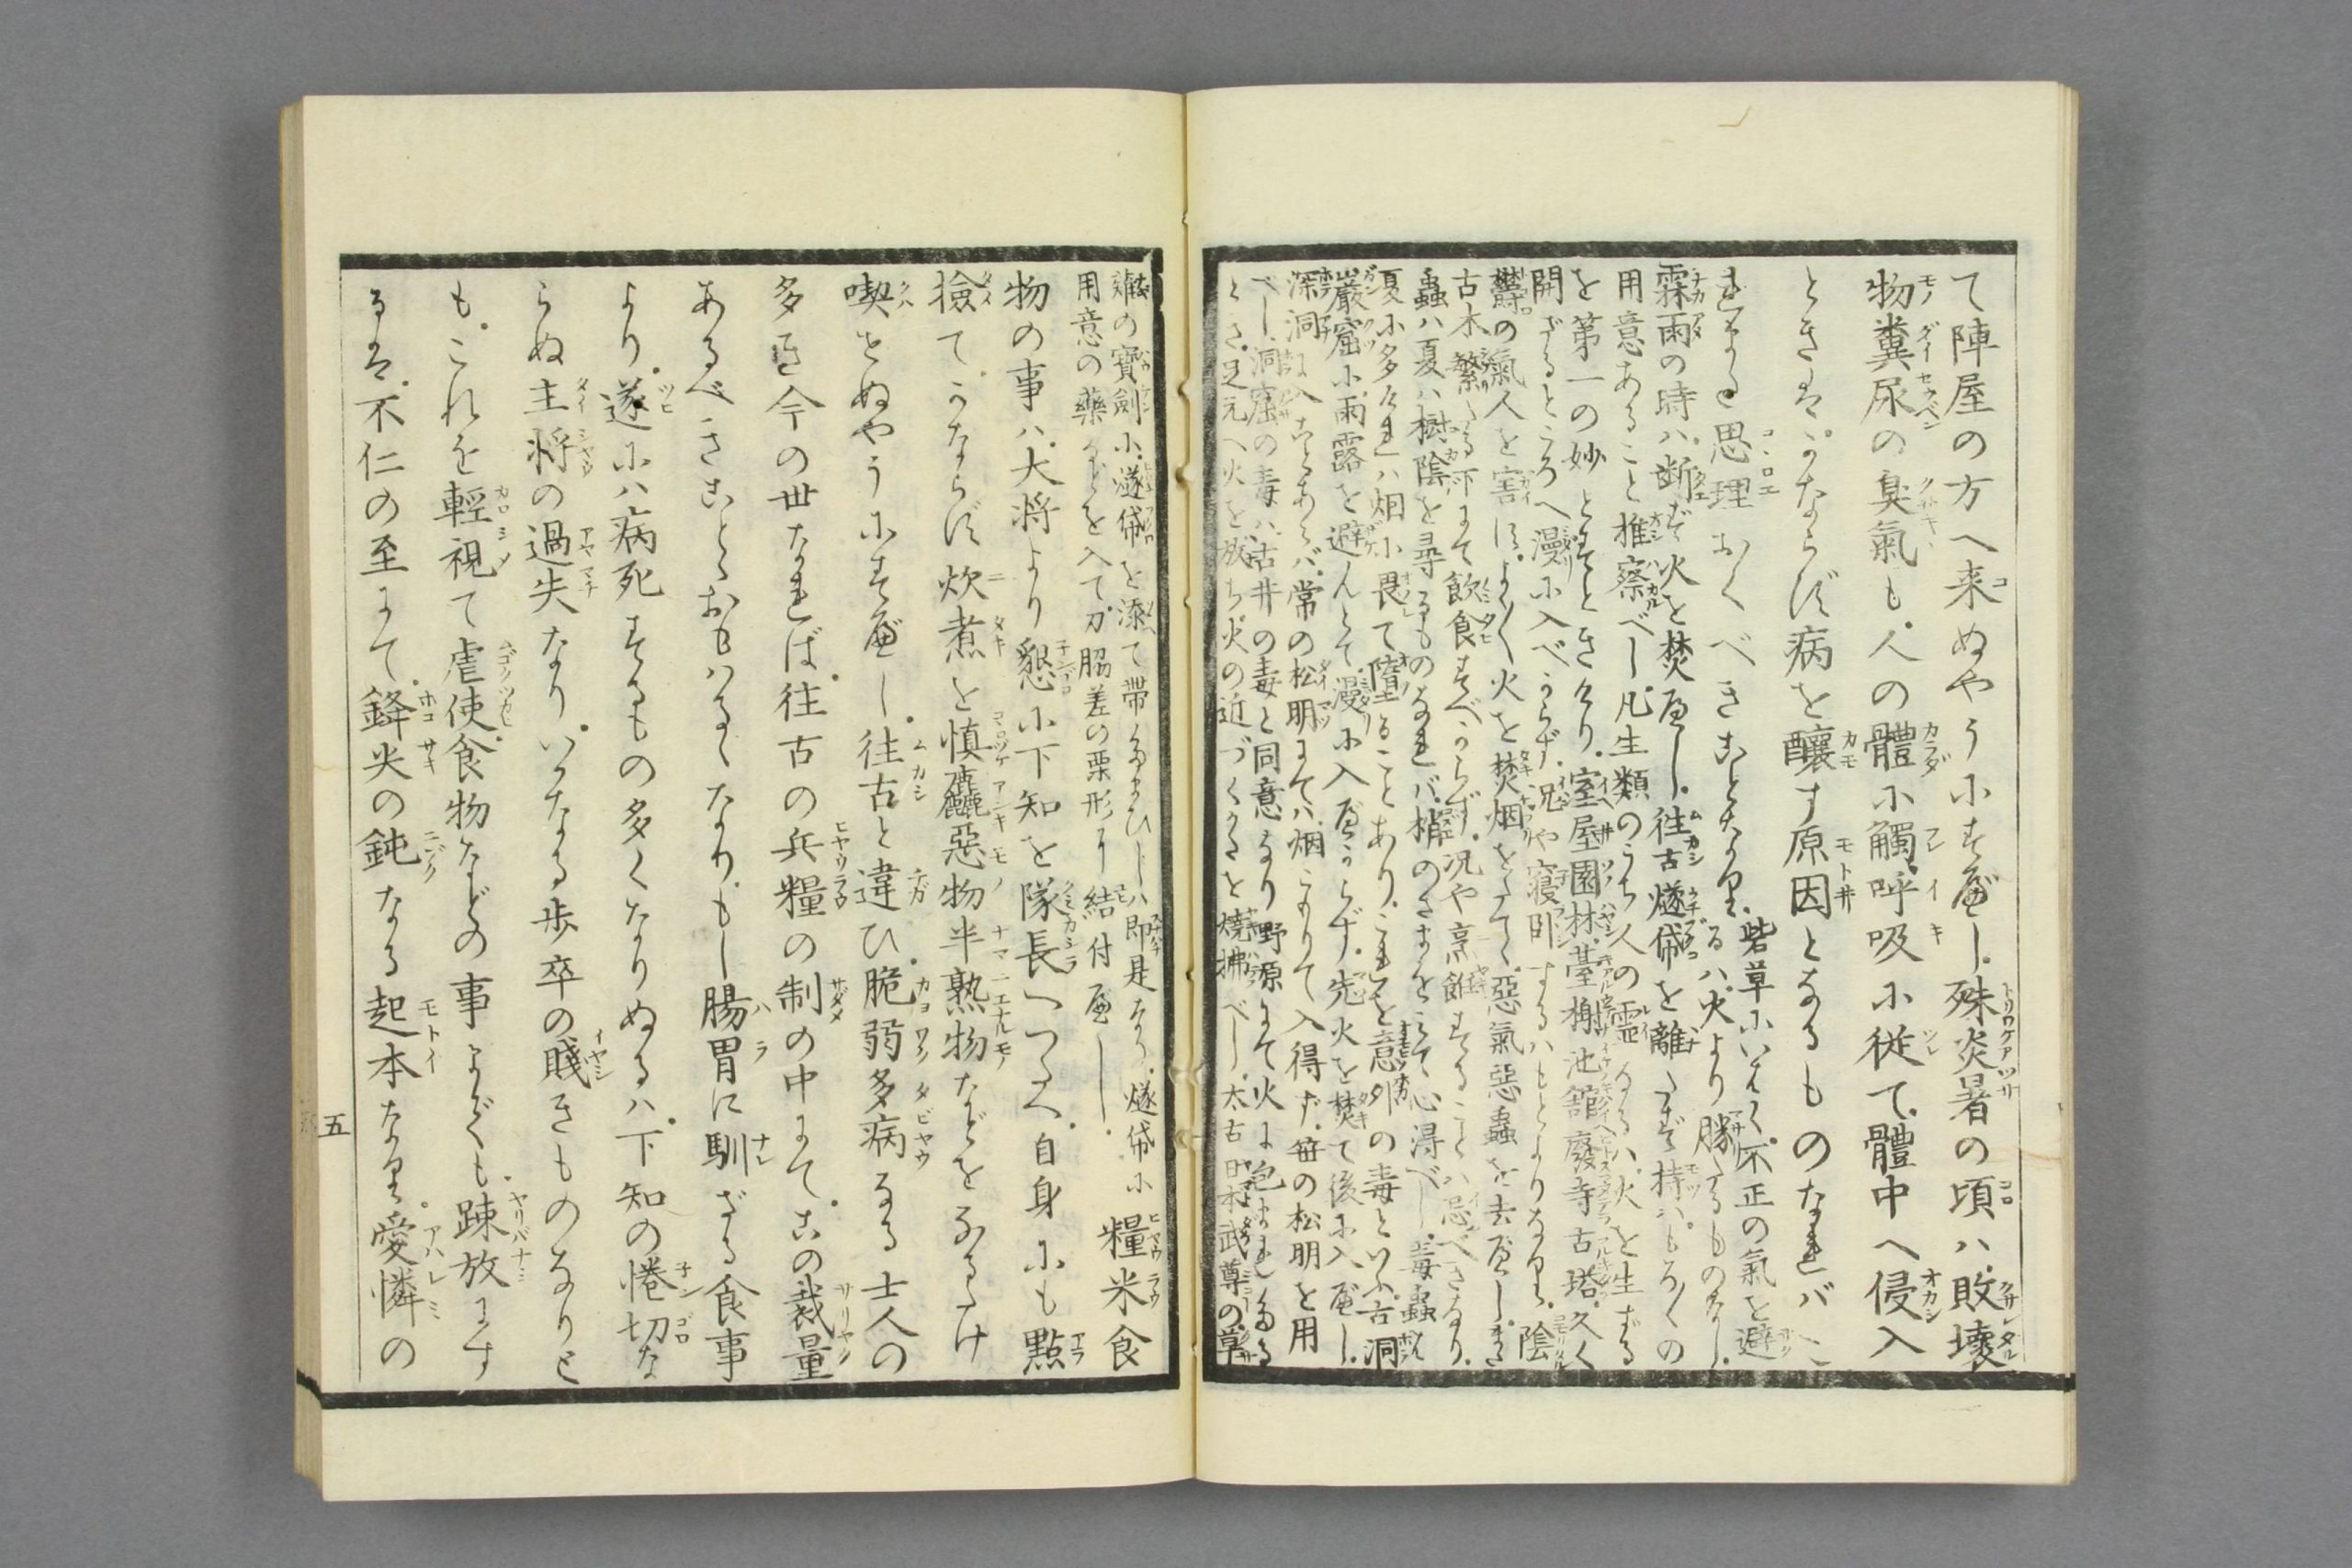 て陣屋の方へ来ぬやうにすべし。殊炎暑の頃ハ。敗壊
物糞尿の臭氣も。人の體に觸呼吸に従て。體中へ侵入
ときは。かならず病を釀す原因となるものなれバこ
れらも思理おくべきことなり。砦草にいはく。不正の氣を避
るハ。火より勝たるものなし。
霖雨の時ハ。断ず火を焚べし。往古燧帒を離たず持ハ。もろ〳〵の
用意あること推察べし。凡生類のうち人の霊なるハ。火を生ずる
を第一の妙とすときけり。室屋園林。臺榭池舘廢寺古塔。久く
開ざるところへ漫に入べからず。况や寢卧するハもとよりなり。陰
欝の氣人を害す。よく〳〵火を焚烟をたて。惡氣惡蟲を去べし。また
古木繁たる下にて飲食すべからず。况や烹饌することハ忌べきなり。
蟲ハ夏ハ樹陰を尋るものなれバ。梢のさまをみて心得べし。毒蟲
夏に多けれハ烟に畏て墮ることあり。これを意外の毒といふ。古洞
巖窟に。雨露を避んとて。漫に入べからず。先火を焚て後に入べし。
深洞に入ことあらバ。常の松明にてハ。烟こもりて入得ず。笹の松明を用
べし。洞窟の毒ハ。古井の毒と同意なり野源にて火に包まれたる
とき。足元へ火を放ち。火の近づくかたを燒拂べし。太古日本武尊の。草
薙の寶劍に。燧帒を添て帯たまひしハ即是なり。燧帒に
用意の藥などを入て。刀脇差の栗形に結付べし。糧米食
物の事ハ。大将より懇に下知を隊長へつたへ。自身にも點
撿て。かならず炊煮を慎麤惡物半熟物などをみるたけ
喫をぬやうにすべし。往古と違ひ。脆弱多病なる士人の
多き今の世なれば。往古の兵糧の制の中にて。この裁量
あるべきことゝおもハるゝなり。もし腸胃に馴ざる食事
より。遂にハ病死するもの多くなりぬるハ。下知の惓切な
らぬ主将の過失なり。いかなる歩卒の賤きものなりと
も。これを輕視て虐使。食物などの事までも。踈放にす
るは。不仁の至にて。鋒尖の鈍なる起本なり。愛憐の
五